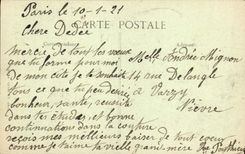 Paris le 10-1-21
CARTE POSTALE
Chere Dédée
Merci de tout les vœux
que tu forme pour moi
de mon coté je te souhaite
tous ce que tu
bonheur, santé, reussite
dans tes études, et bonne
continuation dans la couture
reçois mes meilleurs baiser de tout cœur
comme je t'aime ta vieille grand mère
Melle Andrée Mignon
14 rue Delangle
à Varzy
Nièvre